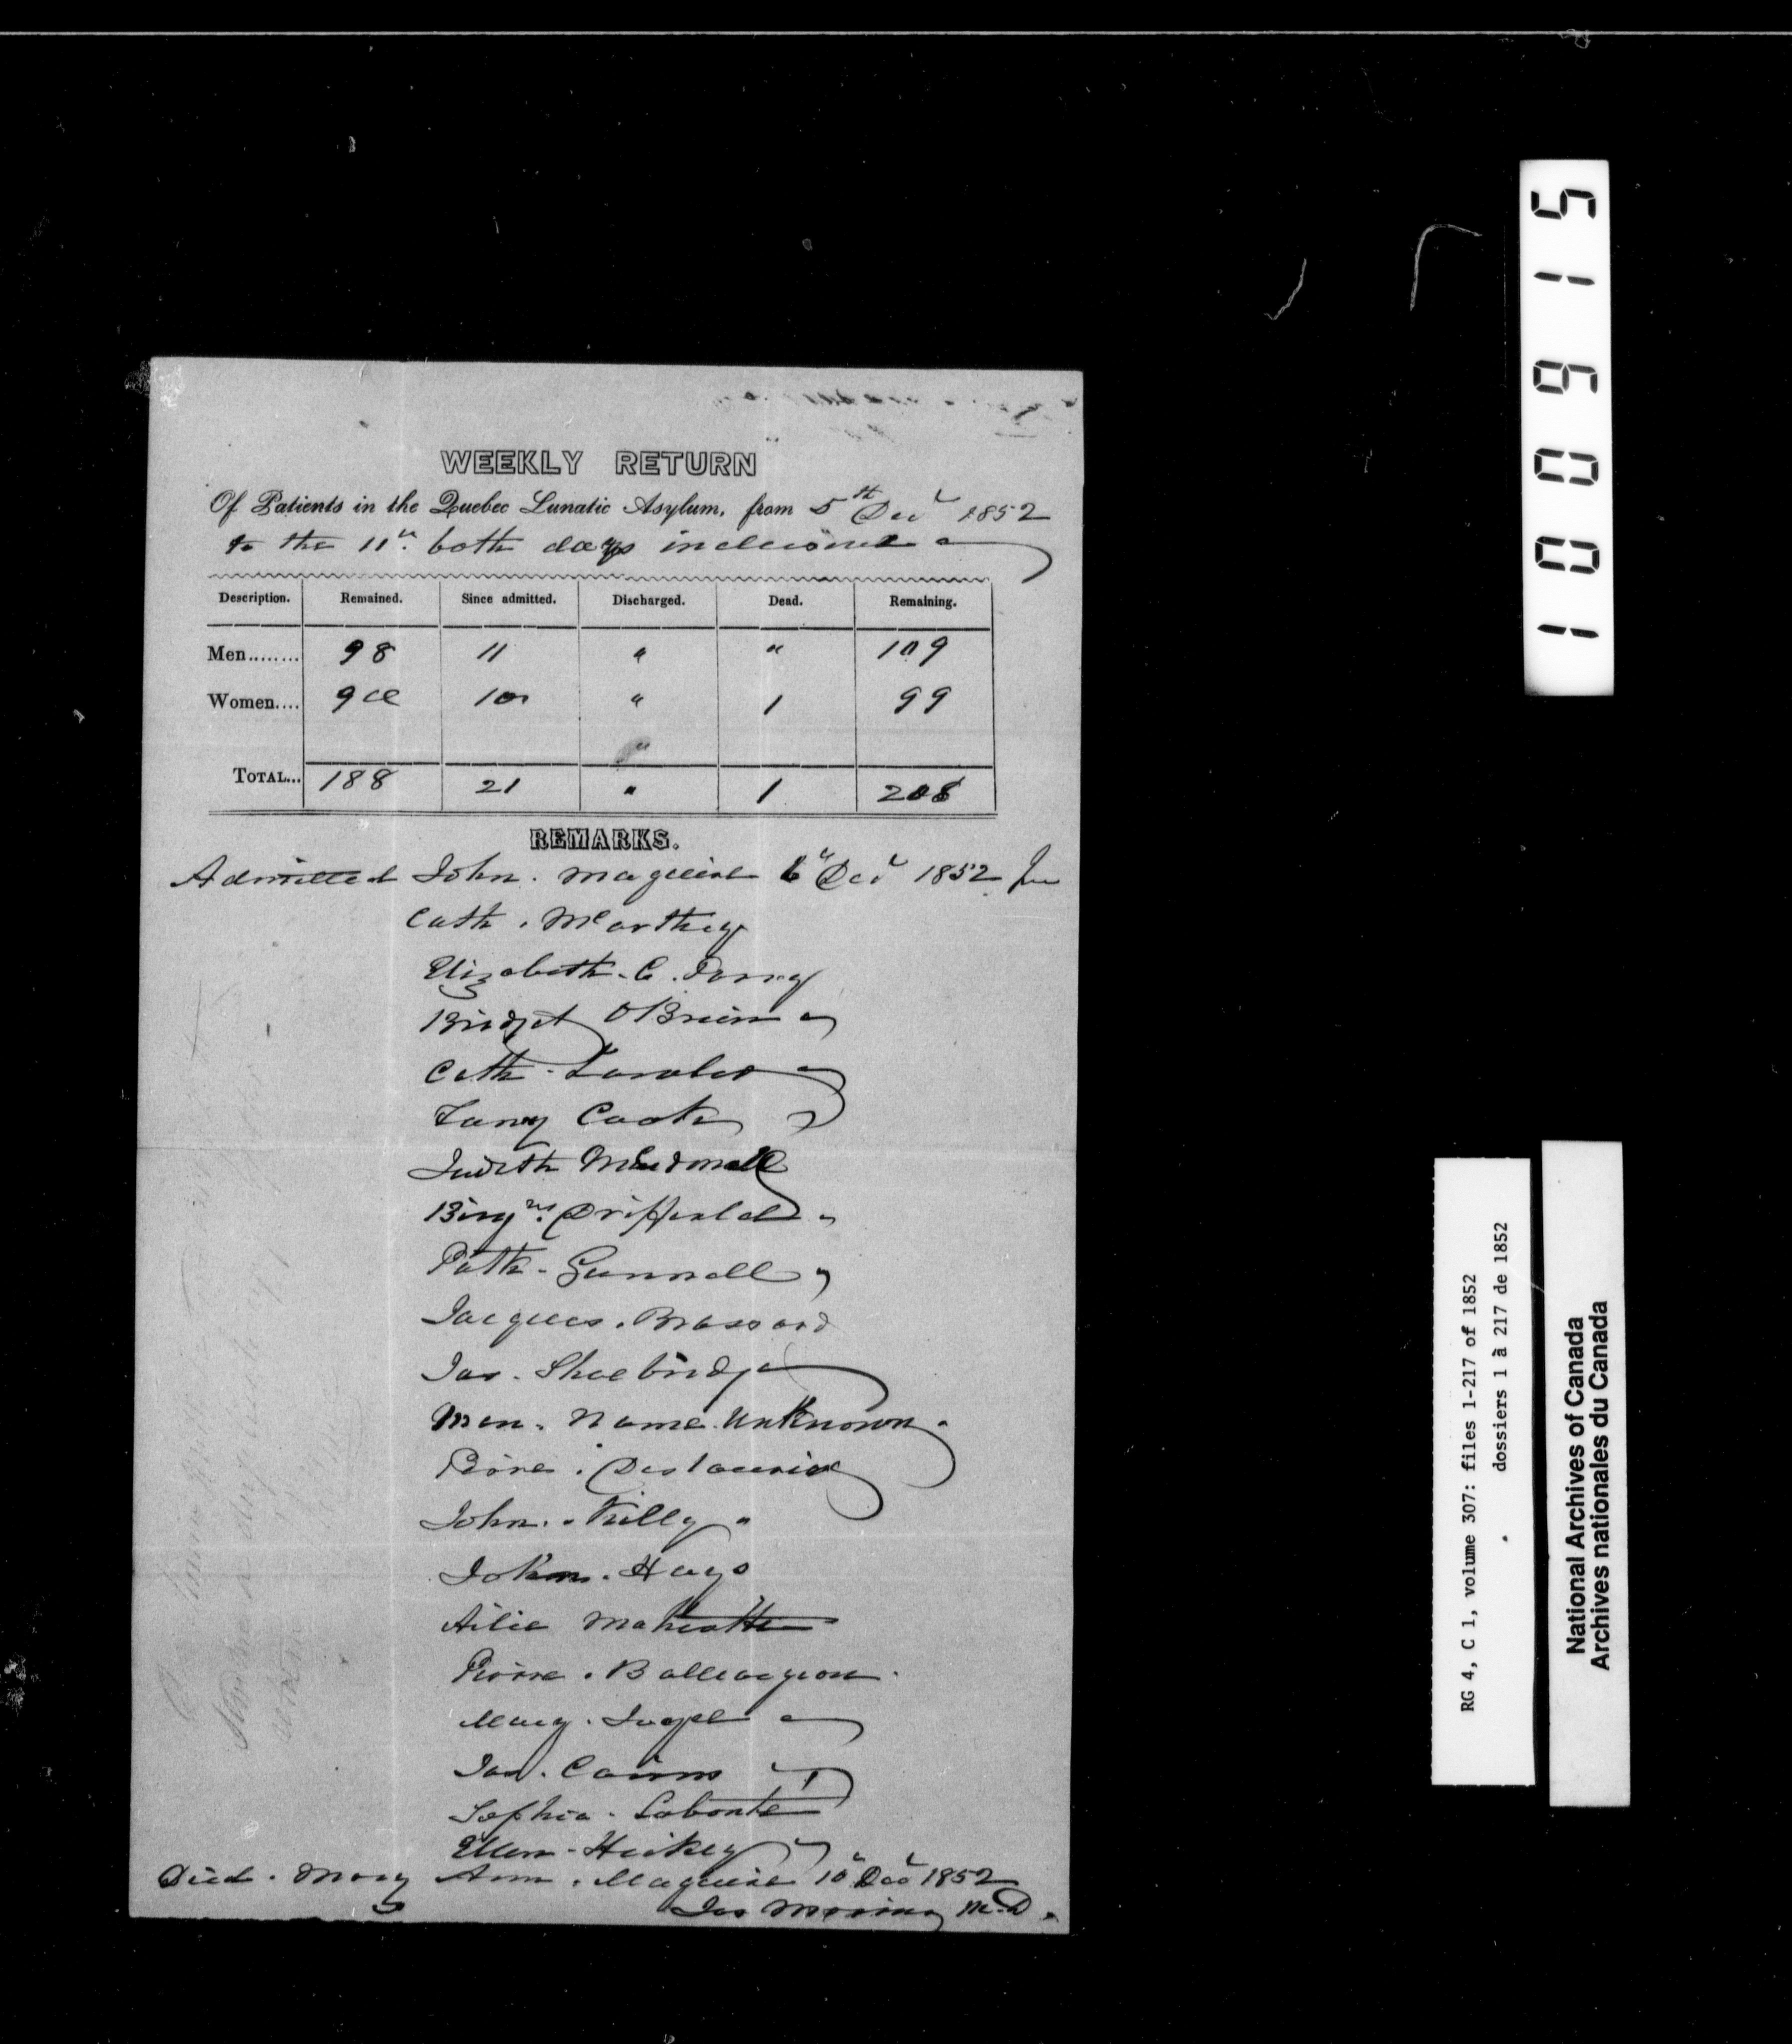 WEEKLY RETURN
Of Patients in the Quebec Lunatic Asylum, from 5th Decr 1852
to the 11th both days inclusive
Description. Remained. Since admitted. Discharged. Dead. Remaining.
Men........ 98 11 " " 109
Women.... 90 10 " 1 99
"
TOTAL... 188 21 " 1 208
REMARKS.
Admitted John. Maguire 6th Decr 1852
Cath. McCarthy
Elizabeth. C.
Bridget O'Brien
Cath.
Fanny Cook
Judith McDonell
Driffield
Patk.
Jacques. Brassard
Jas. Shoebridge
Man. Name Unknown.
Pierre. Deslaurier
John. Killy
John. Hays
Pierre. Baillargeon
Mary.
Jas. Cairns
Sophia. Labonte
Ellen. Hickey
Died. Mary Ann. Maguire 10th Decr 1852
Jas Morrin M.D.
100915
RG 4, C 1, volume 307: files 1-217 of 1852
dossiers 1 à 217 de 1852
National Archives of Canada
Archives nationales du Canada